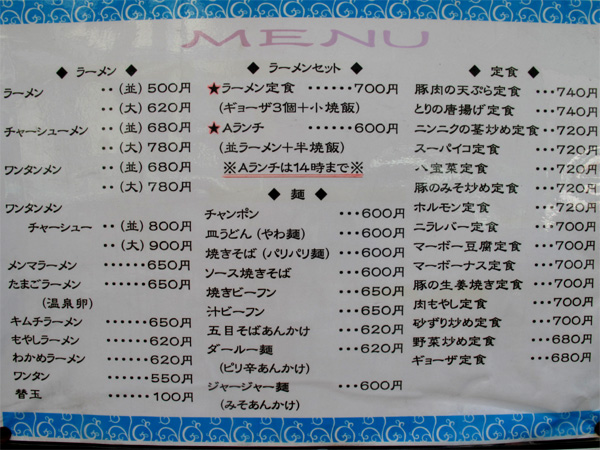 MENU
◆ ラーメン ◆
ラーメン ‥(並) 500円
‥(大) 620円
チャーシューメン ‥(並) 680円
‥(大) 780円
ワンタンメン ‥(並) 680円
‥(大) 780円
ワンタンメン
チャーシュー ‥(並) 800円
‥(大) 900円
メンマラーメン ‥‥‥650円
たまごラーメン ‥‥‥650円
(温泉卵)
キムチラーメン ‥‥‥650円
もやしラーメン ‥‥‥620円
わかめラーメン ‥‥‥620円
ワンタン ‥‥‥550円
替玉 ‥‥‥100円
◆ ラーメンセット ◆
★ラーメン定食 ‥‥‥700円
(ギョーザ3個+小焼飯)
★Aランチ ‥‥‥600円
(並ラーメン+半焼飯)
※Aランチは14時まで※
◆ 麺 ◆
チャンポン ‥‥600円
皿うどん (やわ麺) ‥‥600円
焼きそば (パリパリ麺) ‥‥600円
ソース焼きそば ‥‥600円
焼きビーフン ‥‥600円
汁ビーフン ‥‥600円
五目そばあんかけ ‥‥620円
ダールー麺 ‥‥620円
(ピリ辛あんかけ)
ジャージャー麺 ‥‥600円
(みそあんかけ)
◆ 定食 ◆
豚肉の天ぷら定食 ‥‥740円
とりの唐揚げ定食 ‥‥740円
ニンニクの茎炒め定食 ‥‥720円
スーパイコ定食 ‥‥720円
八宝菜定食 ‥‥720円
豚のみそ炒め定食 ‥‥720円
ホルモン定食 ‥‥720円
ニラレバー定食 ‥‥700円
マーボー豆腐定食 ‥‥700円
マーボーナス定食 ‥‥700円
豚の生姜焼き定食 ‥‥700円
肉もやし定食 ‥‥700円
砂ずり炒め定食 ‥‥700円
野菜炒め定食 ‥‥680円
ギョーザ定食 ‥‥680円